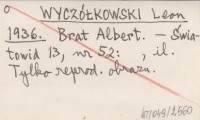 o
WYCZÓŁKOWSKI Leon
1936. Brat Albert. – Świa-
towid 13, nr 52: , il.
Tylko reprod. obrazu.
67/049/2560